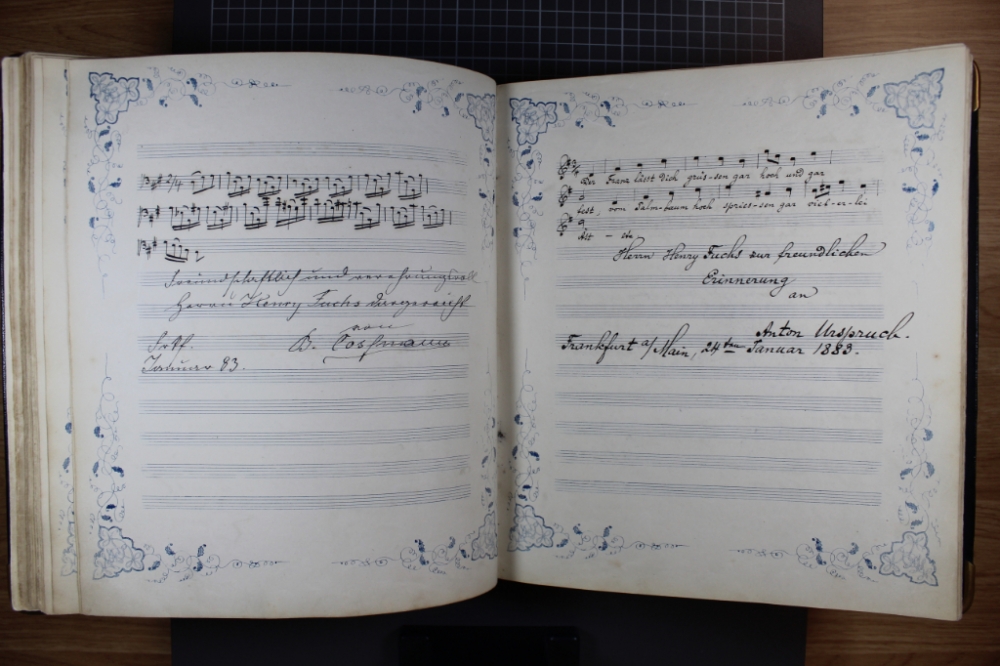 2/4
Freundschaftlich und verehrungsvoll
Herrn Henry Fuchs dargereicht
von
B. Cossmann
Frkf.
Januar 83.
Der Franz lässt dich grüs-sen gar hoch und gar
fest, vom Salm-baum hoch spries-sen gar viel-er-lei
Äst - ste
Herrn Henry Fuchs zur freundlichen
Erinnerung
an
Anton Urspruch.
Frankfurt a/Main, 24ten Januar 1883.